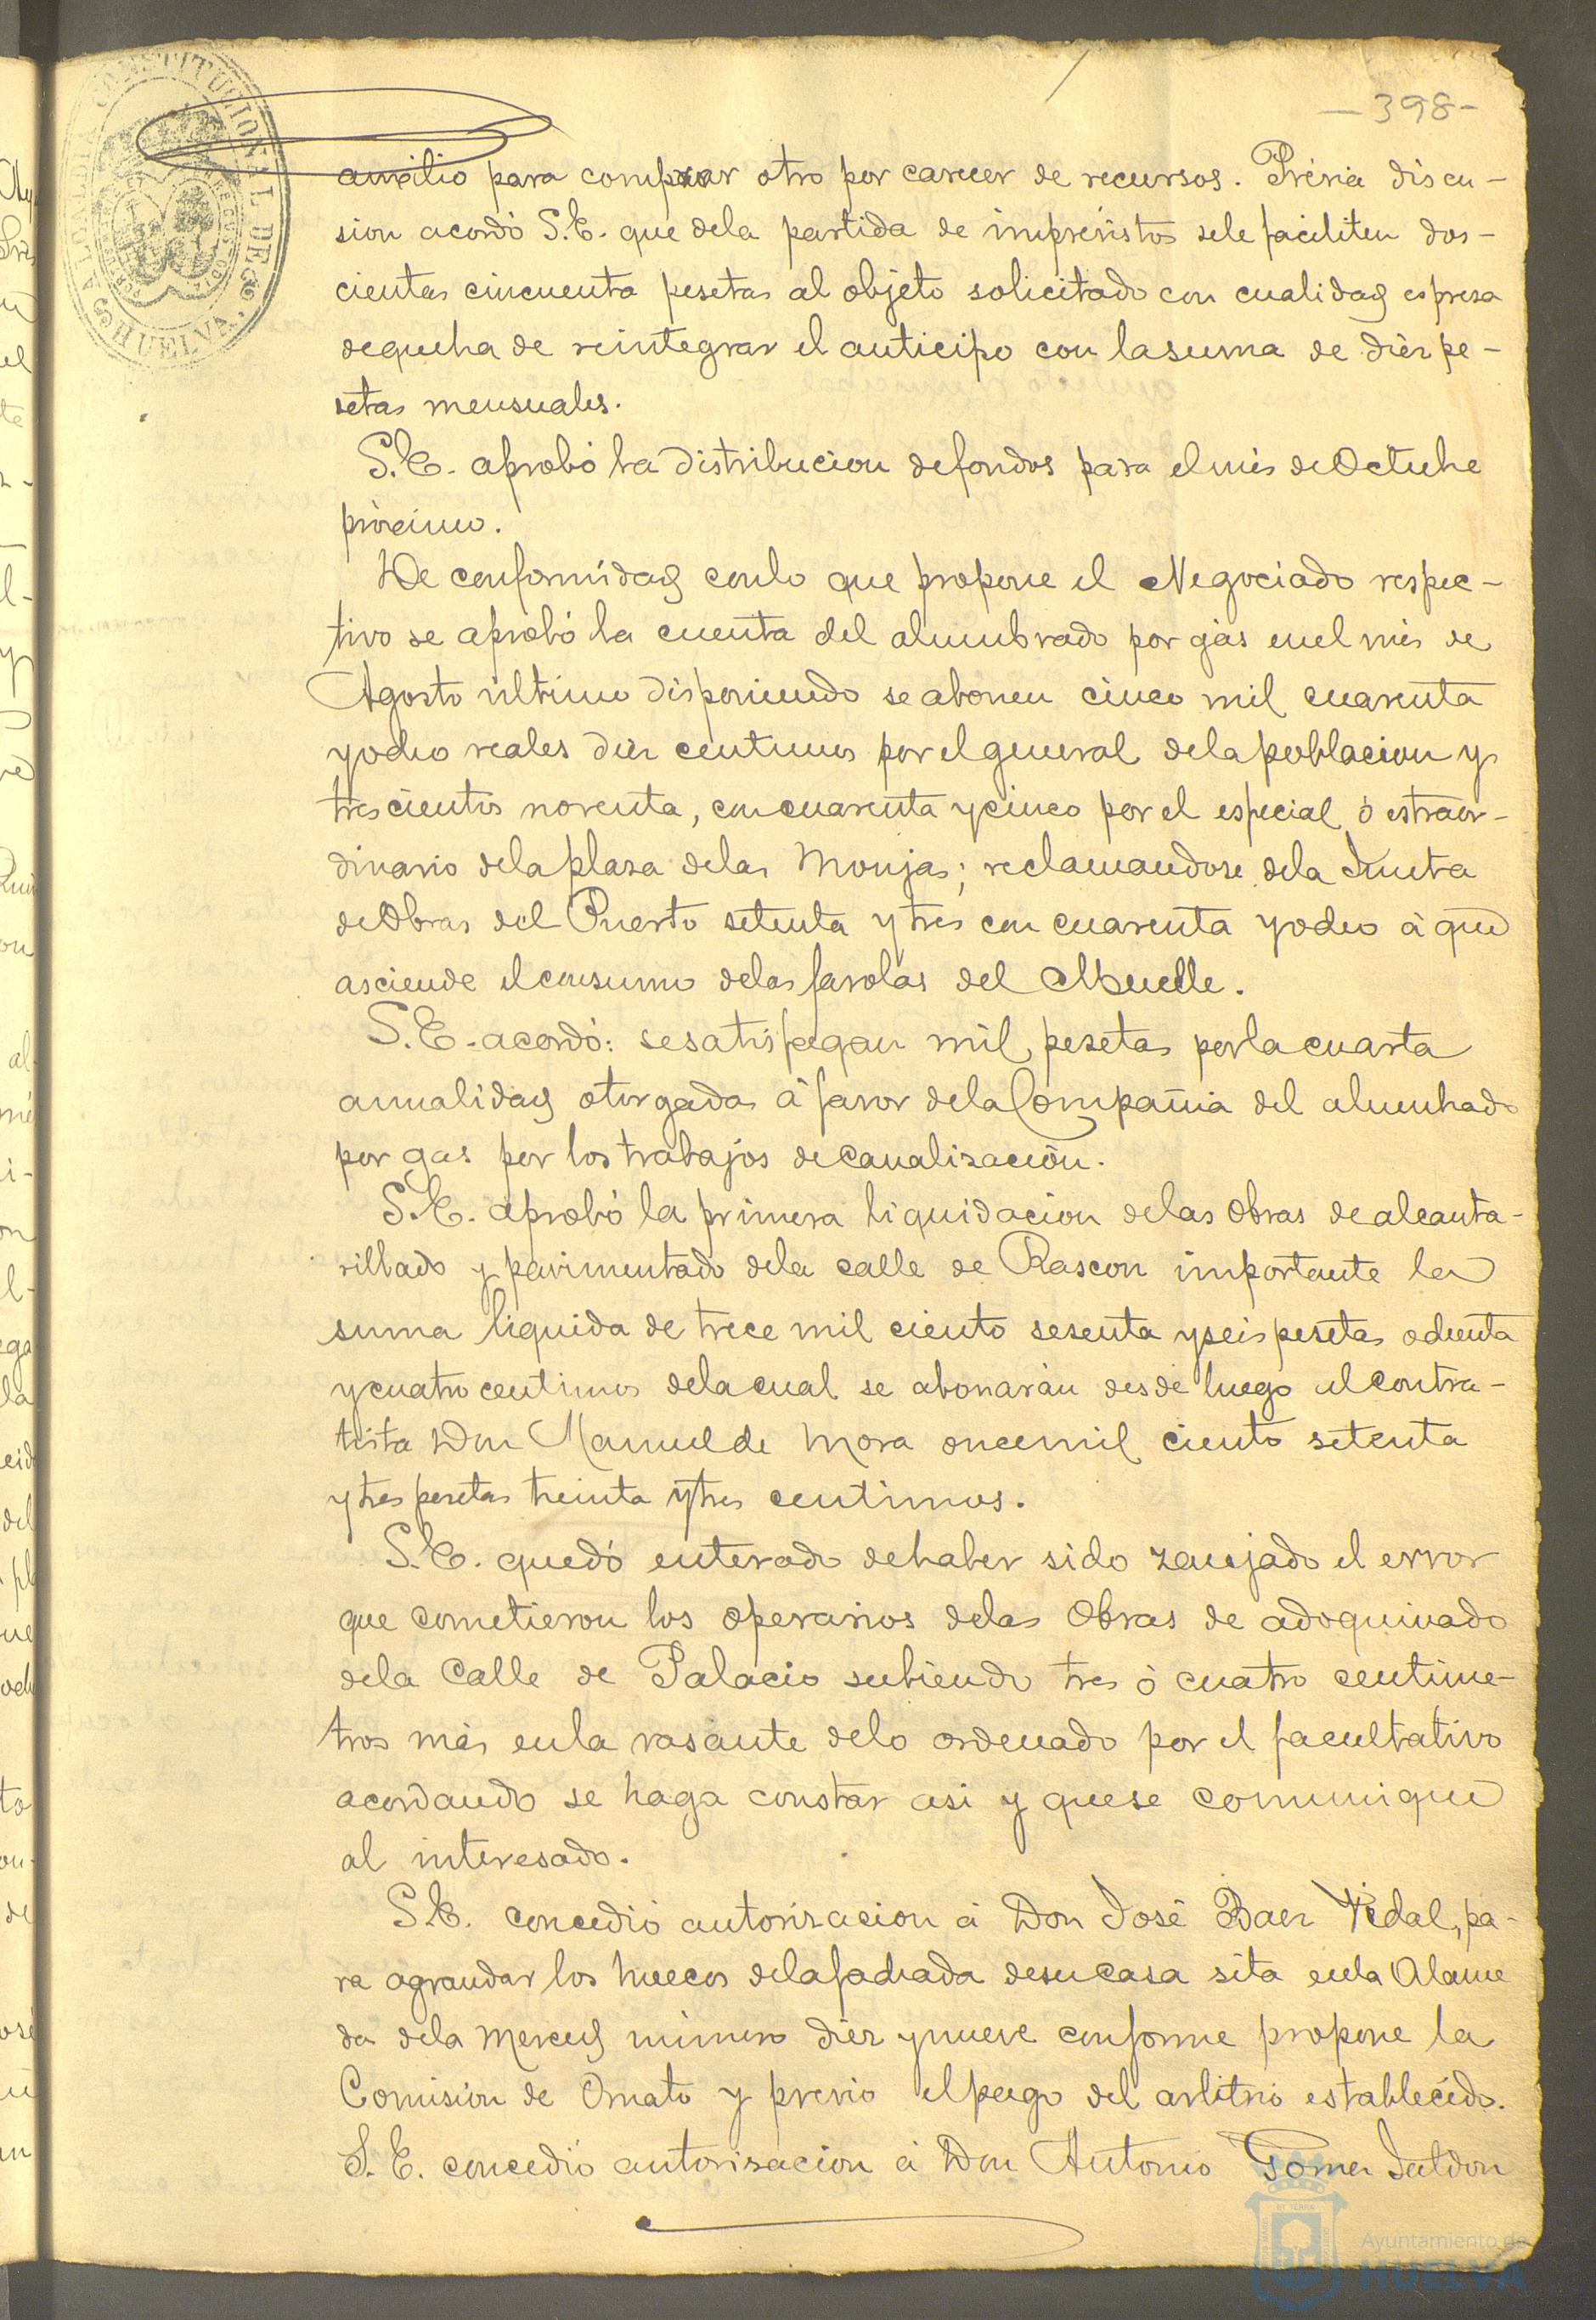 -398-
ALCALDIA CONSTITUCIONAL DE HUELVA
auxilio para comprar otro por carecer de recursos. Prévia discu-
sion acordó S.E. que dela partida de imprevistos sele faciliten dos-
cientas cincuenta pesetas al objeto solicitado con cualidad espresa
de que ha de reintegrar el anticipo con la suma de diez pe-
setas mensuales.
S.E. aprobó la distribucion de fondos para el mes de Octubre
próximo.
De conformidad conlo que propone el Negociado respec-
tivo se aprobó la cuenta del alumbrado por gas enel mes de
Agosto último disponiendo se abonen cinco mil cuarenta
y ocho reales diez centimos por el general dela poblacion y
trescientos noventa, con cuarenta y cinco por el especial ó estraor-
dinario dela plaza delas Monjas; reclamandose dela Junta
de Obras del Puerto setenta y tres con cuarenta y ocho á que
asciende el consumo delas farolas del Muelle.
S.E. acordó: se satisfagan mil pesetas por la cuarta
anualidad otorgada á favor dela Compañia del alumbrado
por gas por los trabajos de canalización.
S.E. aprobó la primera liquidacion delas obras de alcanta-
rillado y pavimentado dela calle de Rascon importante la
suma liquida de trece mil ciento sesenta y seis pesetas ochenta
y cuatro centimos dela cual se abonarán desde luego al contra-
tista Don Manuel de Mora once mil ciento setenta
y tres pesetas treinta y tres centimos.
S.E. quedó enterado de haber sido zanjado el error
que cometieron los operarios delas Obras de adoquinado
dela Calle de Palacio subiendo tres ó cuatro centime-
tros más enla rasante delo ordenado por el facultativo
acordando se haga constar asi y que se comunique
al interesado.
S.E. concedió autorizacion á Don José Baez Vidal, pa-
ra agrandar los huecos dela fachada desu casa sita enla Alame
da dela Merced número diez y nueve conforme propone la
Comisión de Ornato y previo el pago del arbitrio establecido.
S.E. concedió autorizacion á Don Antonio Gomez Saldon
Ayuntamiento de
HUELVA